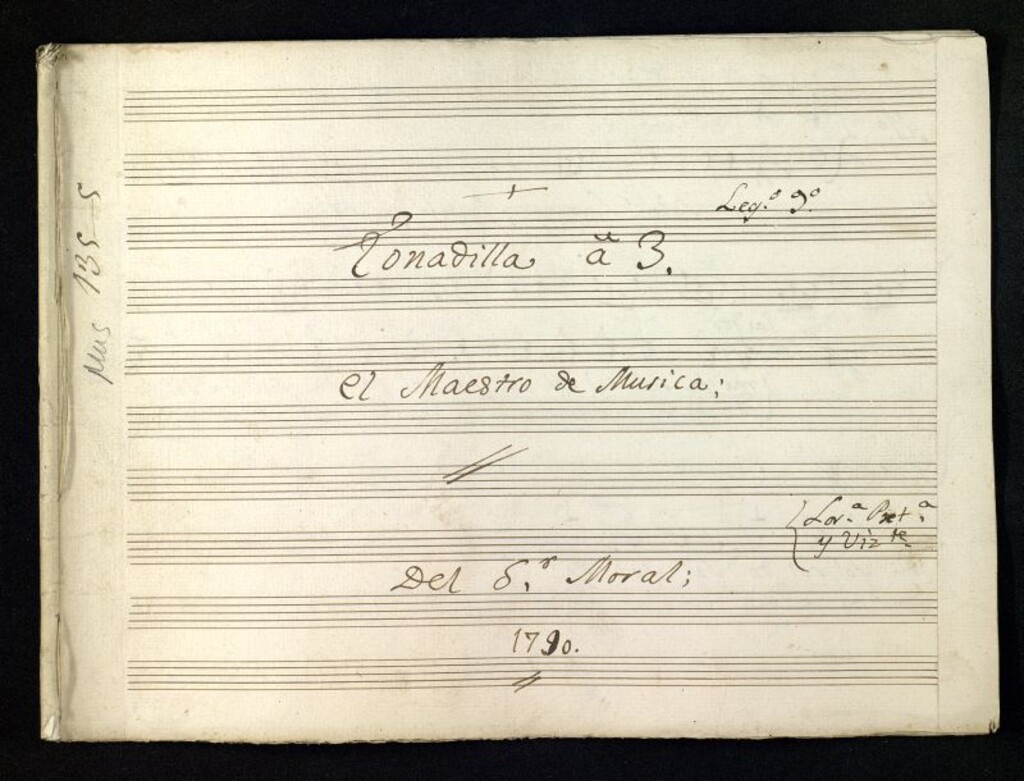 Mus 135-5
Leg.º 9º
Tonadilla a 3.
el Maestro de Musica;
Lor.ª Pret.ª
y Viz.te
Del S.r Moral;
1790.